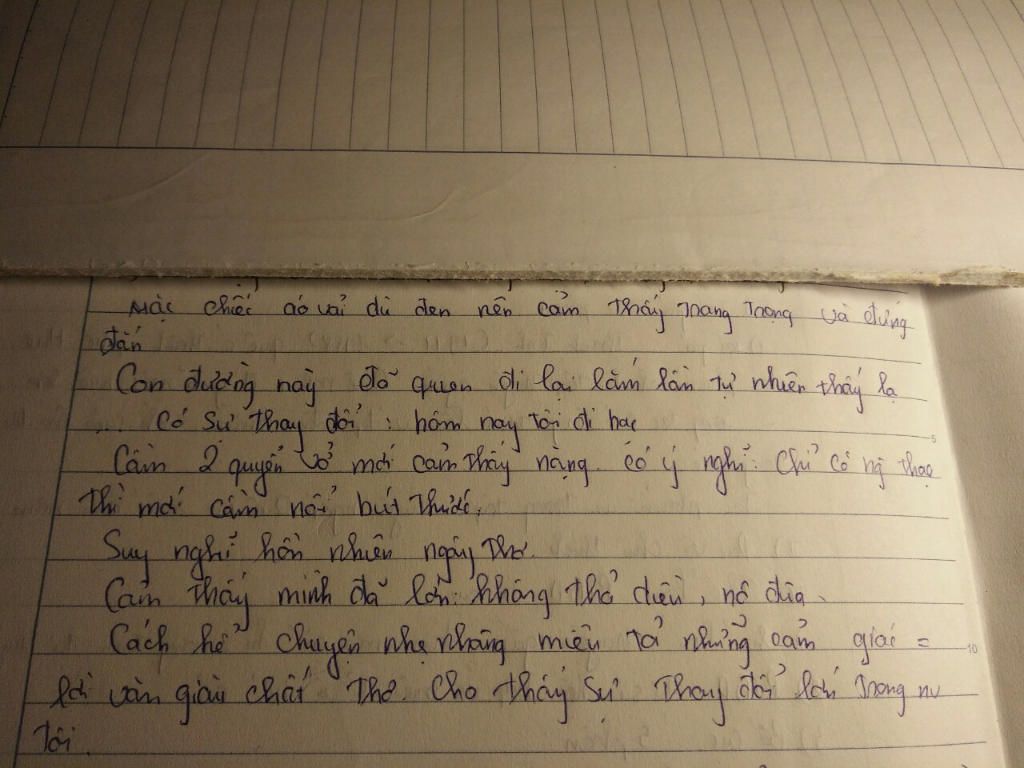 Mặc chiếc áo vải dù đen nên cảm thấy trang trọng và đứng
đắn
Con đường này đã quen đi lại lắm lần tự nhiên thấy lạ
... Có sự thay đổi : hôm nay tôi đi học
Cầm 2 quyển vở mới cảm thấy nặng. có ý nghĩ : Chỉ có ng thạo
thì mới cầm nổi bút thước.
Suy nghĩ hồn nhiên ngây thơ.
Cảm thấy mình đã lớn : không thả diều, nô đùa.
Cách kể chuyện nhẹ nhàng miêu tả những cảm giác =
lời văn giàu chất thơ. Cho thấy sự thay đổi lớn trong nv
tôi.
5
10